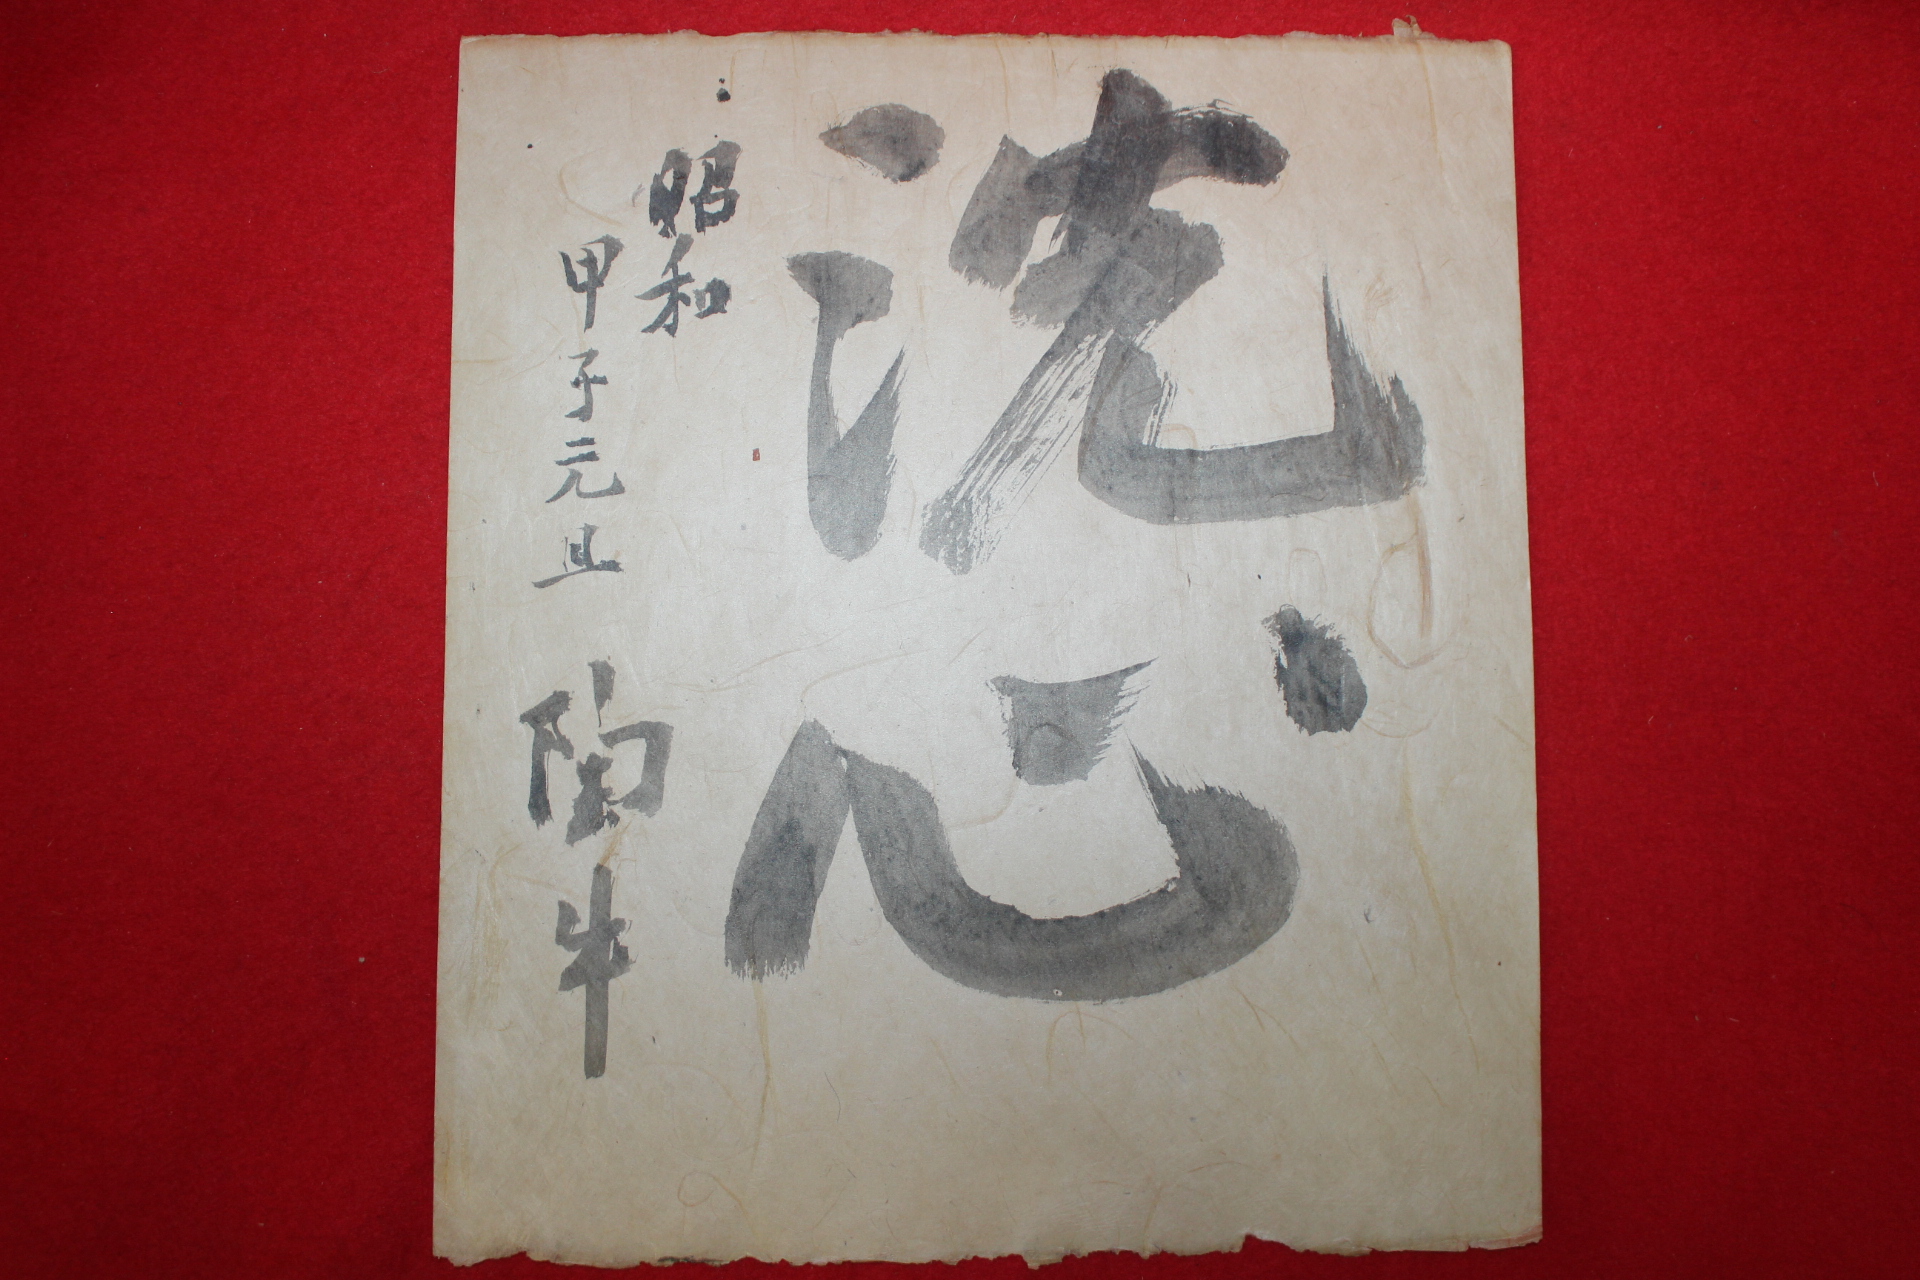 洗心
昭和
甲子元旦
陶牛